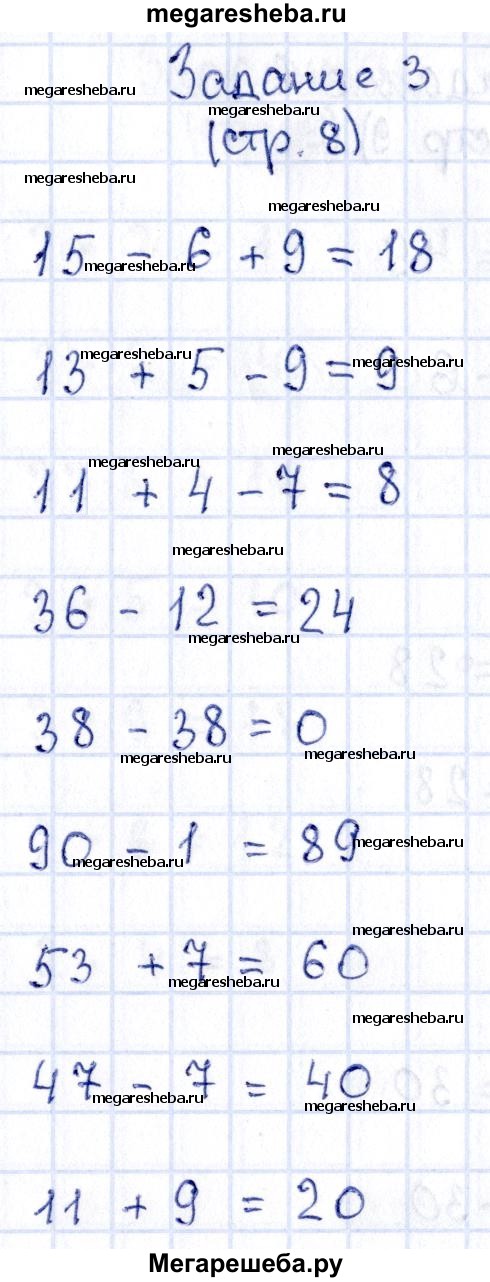 megaresheba.ru
Задание 3
megaresheba.ru
megaresheba.ru
(стр. 8)
megaresheba.ru
megaresheba.ru
15 - 6 + 9 = 18
megaresheba.ru
megaresheba.ru
megaresheba.ru
13 + 5 - 9 = 9
megaresheba.ru
megaresheba.ru
11 + 4 - 7 = 8
megaresheba.ru
36 - 12 = 24
megaresheba.ru
38 - 38 = 0
megaresheba.ru
megaresheba.ru
90 - 1 = 89
megaresheba.ru
megaresheba.ru
megaresheba.ru
53 + 7 = 60
megaresheba.ru
megaresheba.ru
47 - 7 = 40
megaresheba.ru
megaresheba.ru
11 + 9 = 20
Мегарешеба.ру